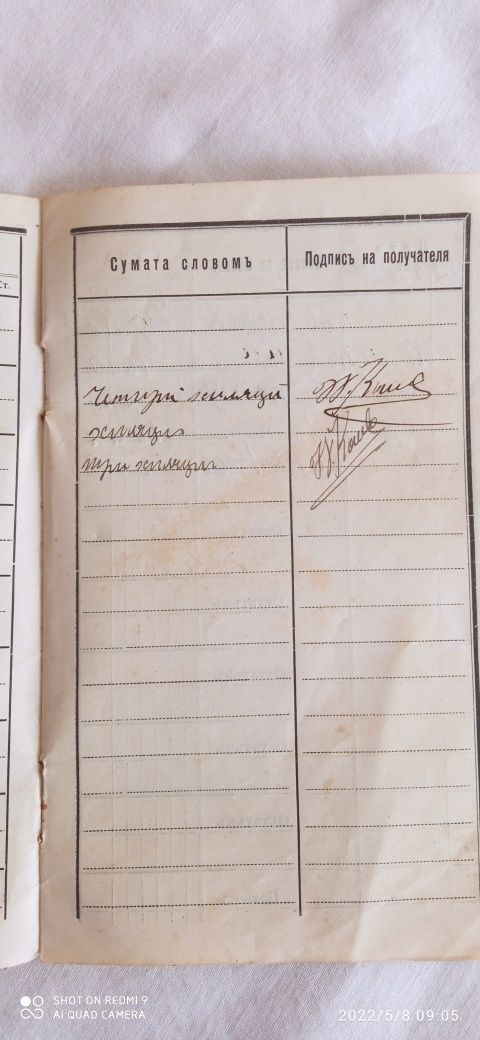 Ст.
Сумата словомъ
Подпись на получателя
Четири хиляди
хиляди
три хиляди
SHOT ON REDMI 9
AI QUAD CAMERA
2022/5/8 09:05